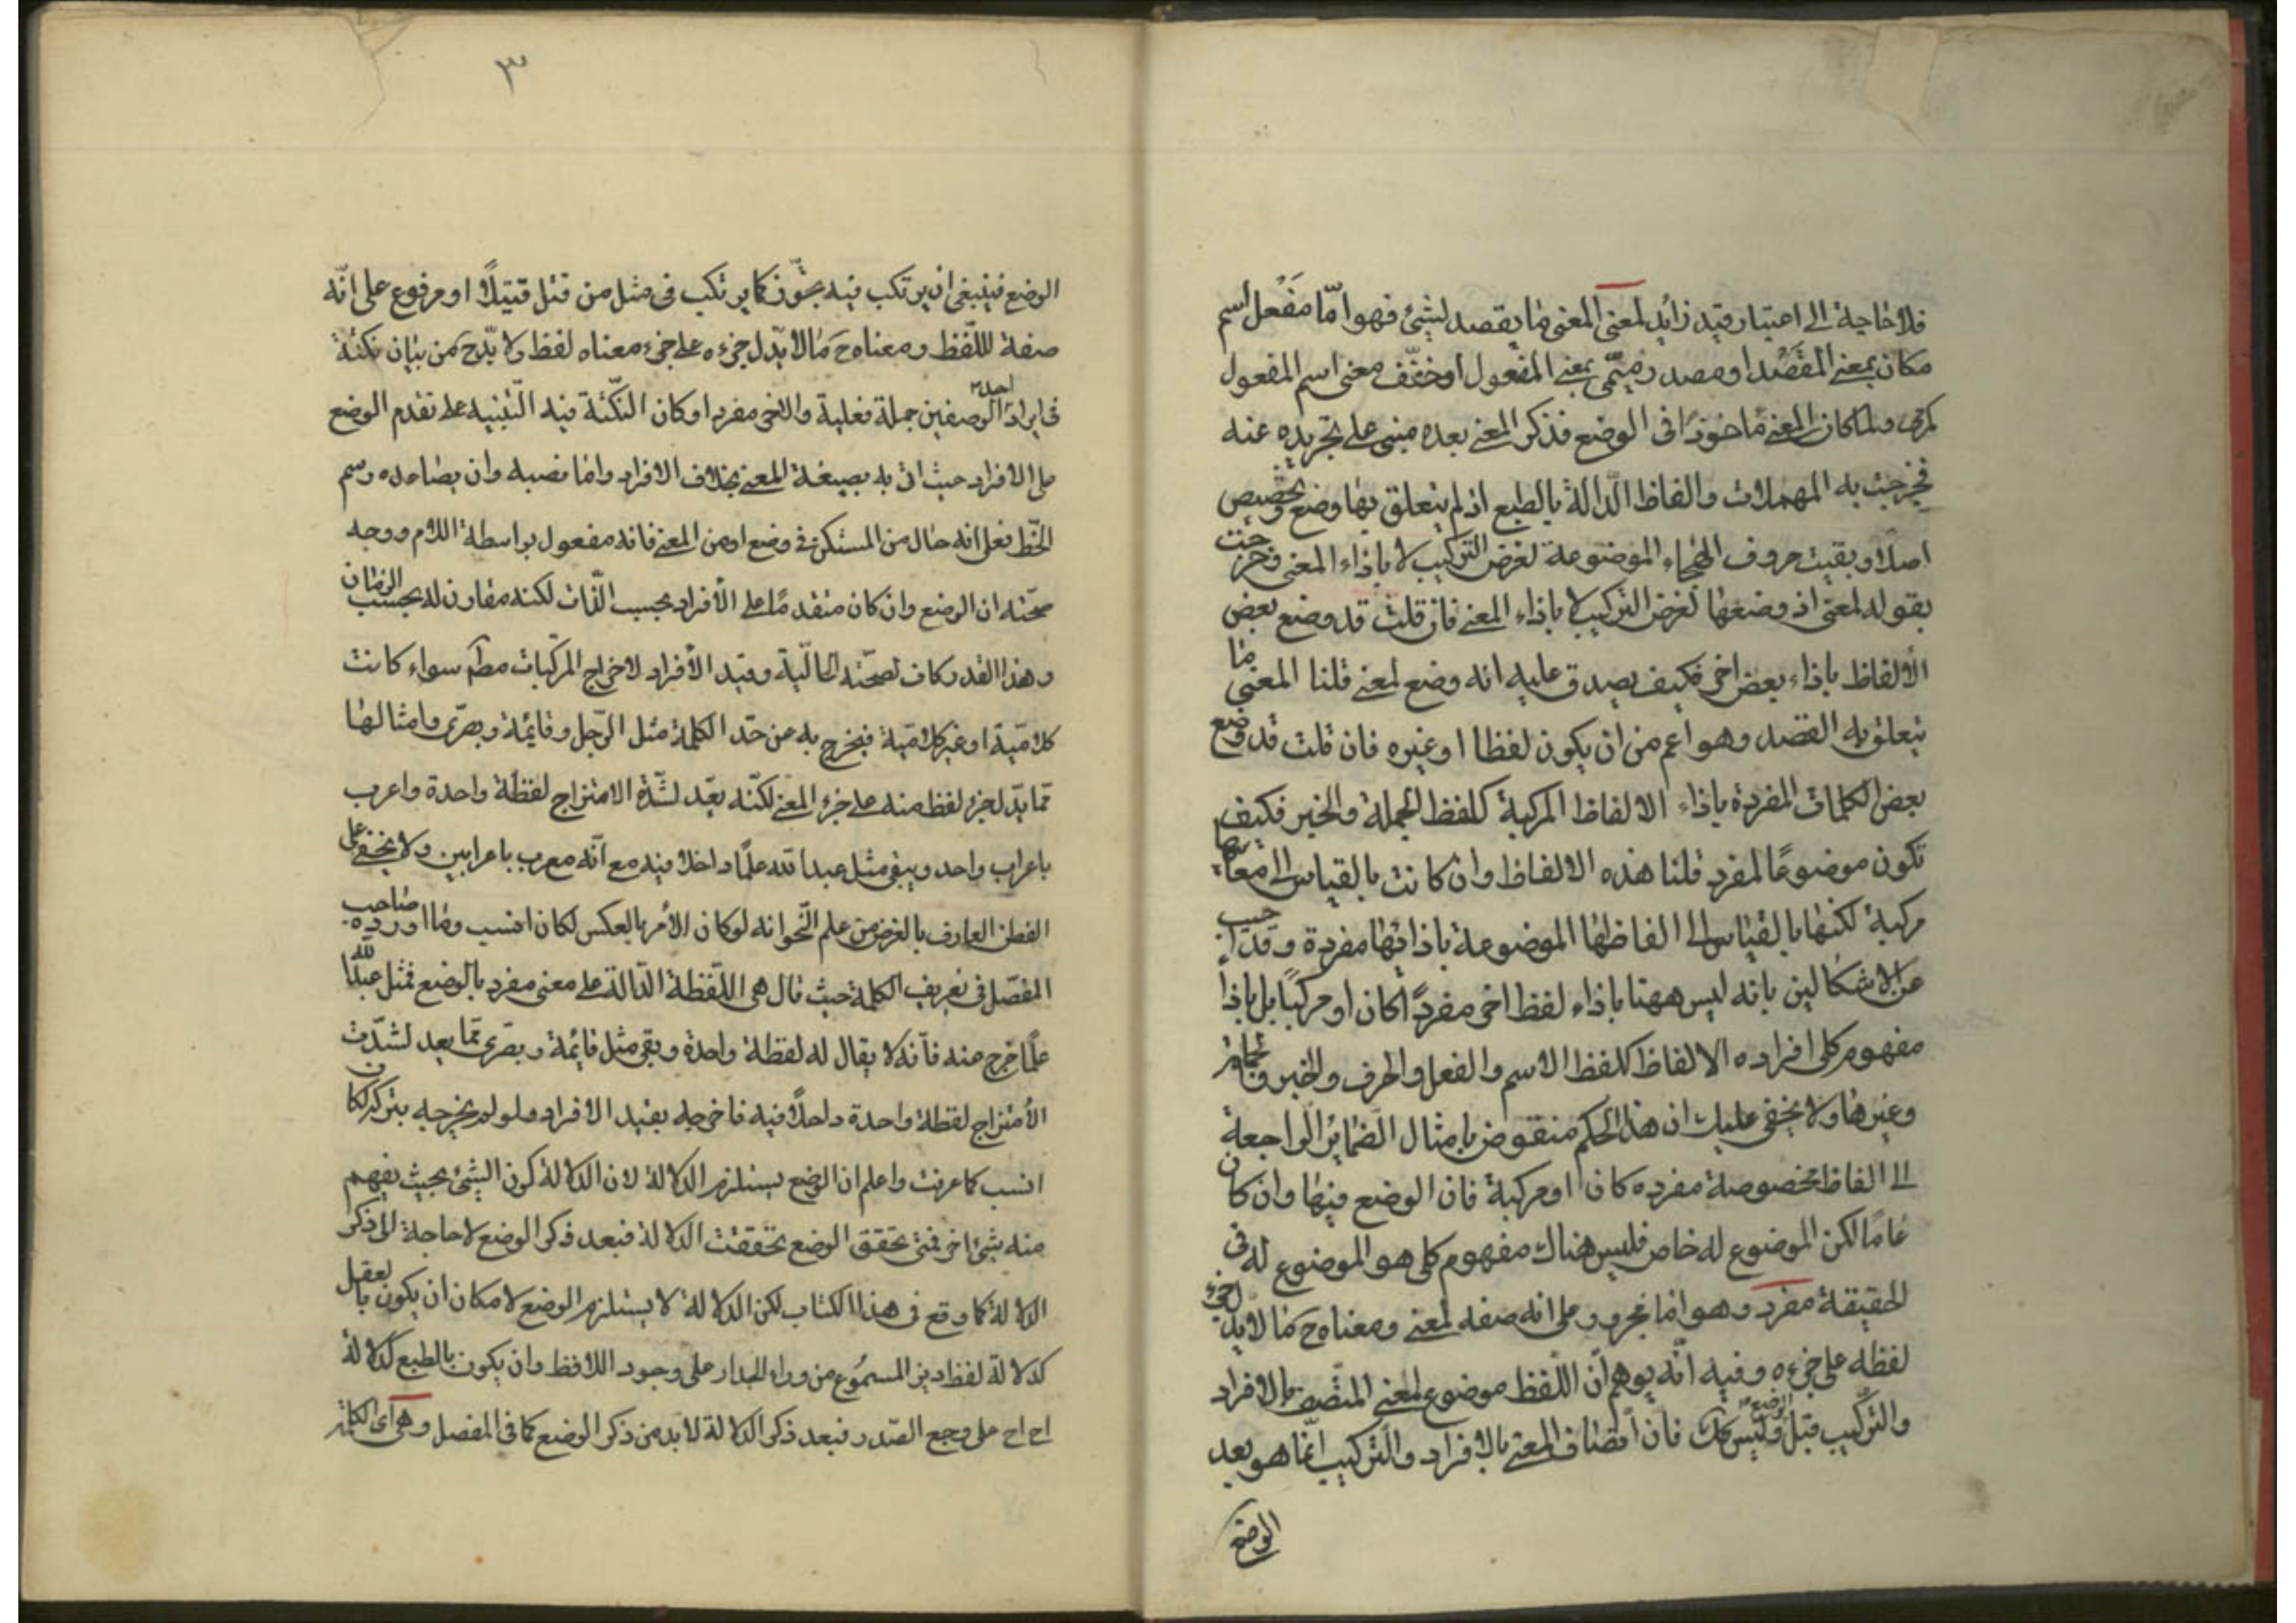 فلا حاجة الى اعتبار قيد زائد لمعنى المعنى ما يقصد لشئ فهو امّا مَفْعل اسم
مكان بمعنى المَقْصَد او مصدر ميمّى بمعنى المفعول او مخفّف معنى اسم المفعول
كمرمى ولما كان المعنى ماخوذًا فى الوضع فذكر المعنى بعده مبنى على تجريده عنه
فخرجت به المهملات والفاظ الدّالة بالطبع اذ لم يتعلق بها وضع وتخصيص
اصلا وبقيت حروف الهجاء الموضوعة لغرض التركيب لا باذاء المعنى وخرجت
بقوله لمعنى اذ وضعها لغرض التركيب لا باذاء المعنى فان قلت قد وضع بعض
الألفاظ باذاء بعض اخر فكيف يصدق عليه انه وضع لمعنى قلنا المعنى ما
يتعلق به القصد وهو اعم من ان يكون لفظا او غيره فان قلت قد وضع
بعض الكلمات المفردة باذاء الالفاظ المركبة كلفظ الجملة والخبر فكيف
تكون موضوعًا لمفرد قلنا هذه الالفاظ وان كانت بالقياس الى معانيها
مركبة لكنها بالقياس الى الفاظها الموضوعة باذائها مفردة وقد اجيب
عن الاشكالين بانه ليس ههنا باذاء لفظ اخر مفردًا كان او مركبًا بل باذاء
مفهوم كلى افراده الالفاظ كلفظ الاسم والفعل والحرف والخبر والجملة
وغيرها ولا يخفى عليك ان هذا الحكم منقوض بامثال الضمائر الراجعة
الى الفاظ مخصوصة مفرده كان او مركبة فان الوضع فيها وان كان
عامًا لكن الموضوع له خاص فليس هناك مفهوم كلى هو الموضوع له فى
الحقيقة مفرد وهو اما مجرور على انه صفة لمعنى ومعناه ح ما لا يدل جزء
لفظه على جزءه وفيه انّه يوهم انّ اللّفظ موضوع لمعنى المتّصف بالافراد
والتركيب قبل الوضع وليس كك فان اتصاف المعنى بالافراد والتركيب انّما هو بعد
الوضع
٣
الوضع فينبغى ان يرتكب فيه تجوّز كما يرتكب فى مثل من قتل قتيلًا او مرفوع على انّه
صفة للّفظ ومعناه ح ما لا يدّل جزءه على جزء معناه لفظ ولا بدّ ح من بيان نكتة
فى ايراد احد الوصفين جملة فعلية والاخر مفرد او كان النكّتة فيه التّنبيه على تقدم الوضع
على الافراد حيث اتى به بصيغة المعنى بخلاف الافراد واما نصبه وان يصاعده رسم
الخّط فعلى انه حال من المستكن فى وضع او من المعنى فانه مفعول بواسطة اللام ووجه
صحّته ان الوضع وان كان متقدمًا على الأفراد بحسب الذّات لكنه مقارن له بحسب الزمان
وهذا القدر كاف لصحّته الحالّية وقيد الأفراد لاخراج المركبات مطم سواء كانت
كلاميّة او غير كلاميّة فيخرج به عن حّد الكلمة مثل الرّجل وقايمة وبصرّى وامثالها
ممّا يدّل جزء لفظ منه على جزء المعنى لكنّه يعّد لشدّة الامتزاج لفظة واحدة واعرب
باعراب واحد ويبقى مثل عبدالله علمًا داخلا فيه مع انّه معرب باعرابين ولا يخفى على
الفطن العارف بالغرض من علم النّحو انه لو كان الأمر بالعكس لكان انسب وما اورده صاحب
المفصّل فى تعريف الكلمة حيث قال هى اللّفظة الدّالة على معنى مفرد بالوضع فمثل عبدالله
علمًا خرج منه فأنه لا يقال له لفظة واحدة وبقى مثل قايمة وبصرى ممّا يعد لشدّت
الأمتزاج لفظة واحدة داخلًا فيه فاخرجه بقيد الافراد ولو لم يخرجه بتركه لكان
انسب كما عرفت واعلم ان الوضع يستلزم الدلالة لان الدلالة كون الشئ بحيث يفهم
منه شئ اخر فمتى تحقق الوضع تحققت الدلالة فبعد ذكر الوضع لا حاجة الى ذكر
الدلالة كما وقع فى هذا الكتاب لكن الدلالة لا يستلزم الوضع لامكان ان يكون بالعقل
كدلالة لفظ ديز المسموع من وراء الجدار على وجود اللافظ وان يكون بالطبع كدلالة
اح اح على وجع الصّدر فبعد ذكر الدلالة لا بد من ذكر الوضع كما فى المفصل وهى اى الكلمة